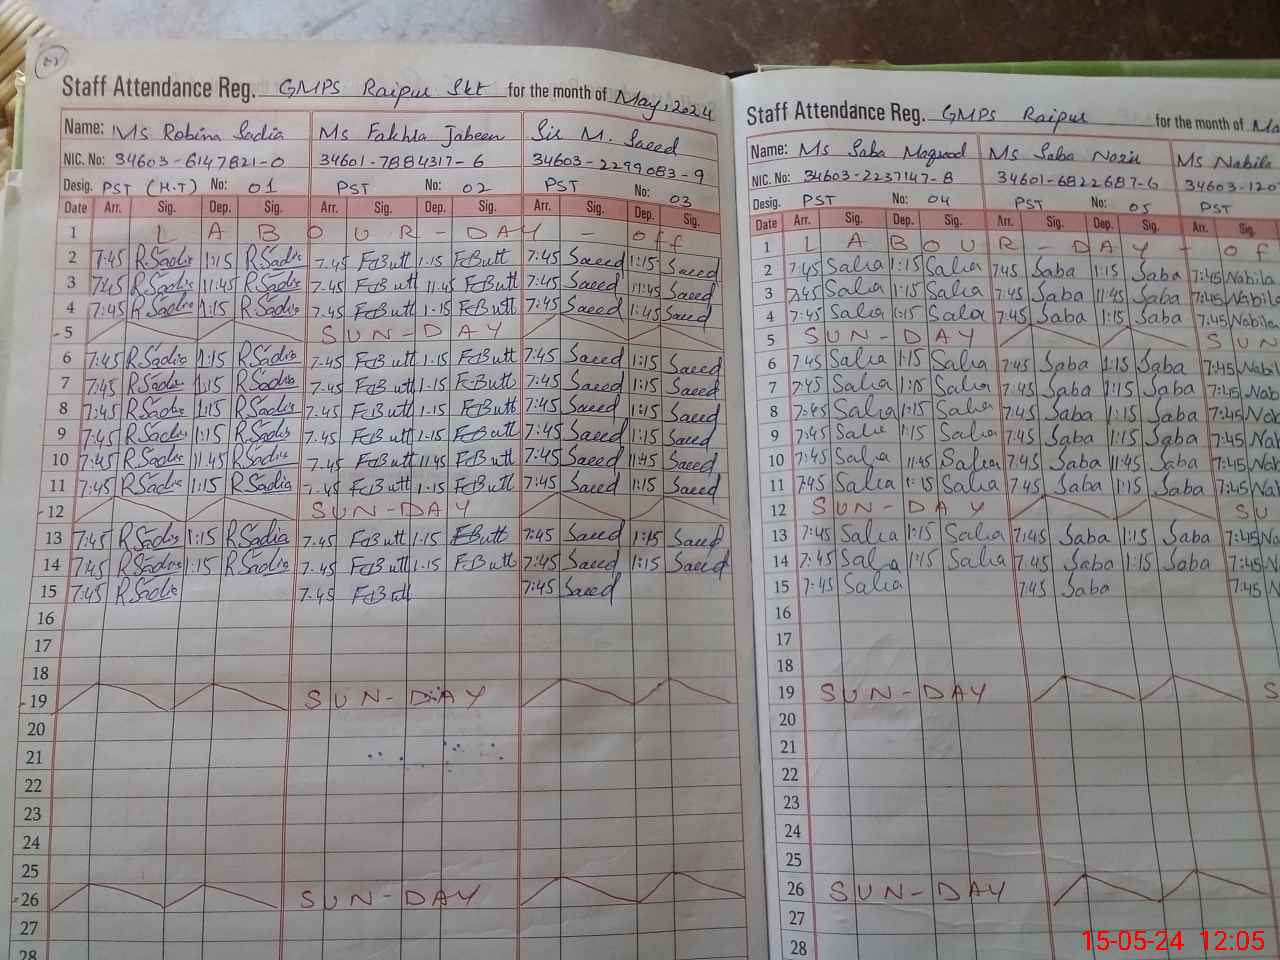 Staff Attendance Reg. GMPS Raipur Skt for the month of May, 2024
Name: Ms Robina Sadia Ms Fakhra Jabeen Sir M. Saeed
NIC. No: 34603-6147821-0 34601-7884317-6 34603-2299083-9
Desig. PST (H.T) No: 01 PST No: 02 PST No: 03
Date Arr. Sig. Dep. Sig. Arr. Sig. Dep. Sig. Arr. Sig. Dep. Sig.
1 LABOUR-DAY - off
2 7:45 RSadia 1:15 RSadia 7.45 FButt 1.15 FButt 7:45 Saeed 1:15 Saeed
3 7:45 RSadia 11:45 RSadia 7.45 FButt 11.45 FButt 7:45 Saeed 11:45 Saeed
4 7:45 RSadia 1:15 RSadia 7.45 FButt 1.15 FButt 7:45 Saeed 1:45 Saeed
5 SUN-DAY
6 7:45 RSadia 1:15 RSadia 7.45 FButt 1.15 FButt 7:45 Saeed 1:15 Saeed
7 7:45 RSadia 1:15 RSadia 7.45 FButt 1.15 FButt 7:45 Saeed 1:15 Saeed
8 7:45 RSadia 1:15 RSadia 7.45 FButt 1.15 FButt 7:45 Saeed 1:15 Saeed
9 7:45 RSadia 1:15 RSadia 7.45 FButt 1.15 FButt 7:45 Saeed 1:15 Saeed
10 7:45 RSadia 11:45 RSadia 7.45 FButt 11.45 FButt 7:45 Saeed 11:45 Saeed
11 7:45 RSadia 1:15 RSadia 7.45 FButt 1.15 FButt 7:45 Saeed 1:15 Saeed
12 SUN-DAY
13 7:45 RSadia 1:15 RSadia 7.45 FButt 1.15 FButt 7:45 Saeed 1:15 Saeed
14 7:45 RSadia 1:15 RSadia 7.45 FButt 1.15 FButt 7:45 Saeed 1:15 Saeed
15 7:45 RSadia 7.45 FButt 7:45 Saeed
16
17
18
19 SUN-DAY
20
21
22
23
24
25
26 SUN-DAY
27
28
Staff Attendance Reg. GMPS Raipur for the month of Ma
Name: Ms Saba Maqsood Ms Saba Nazir Ms Nabila
NIC. No: 34603-2237147-8 34601-6822687-6 34603-120
Desig. PST No: 04 PST No: 05 PST
Date Arr. Sig. Dep. Sig. Arr. Sig. Dep. Sig. Arr. Sig.
1 LABOUR-DAY - of
2 7:45 Saba 1:15 Saba 7:45 Saba 1:15 Saba 7:45 Nabila
3 7:45 Saba 11:45 Saba 7:45 Saba 11:45 Saba 7:45 Nabila
4 7:45 Saba 1:15 Saba 7:45 Saba 1:15 Saba 7:45 Nabila
5 SUN-DAY SUN
6 7:45 Saba 1:15 Saba 7:45 Saba 1:15 Saba 7:45 Nabil
7 7:45 Saba 1:15 Saba 7:45 Saba 1:15 Saba 7:45 Nab
8 7:45 Saba 1:15 Saba 7:45 Saba 1:15 Saba 7:45 Nab
9 7:45 Saba 1:15 Saba 7:45 Saba 1:15 Saba 7:45 Nab
10 7:45 Saba 11:45 Saba 7:45 Saba 11:45 Saba 7:45 Nab
11 7:45 Saba 1:15 Saba 7:45 Saba 1:15 Saba 7:45 Na
12 SUN-DAY SU
13 7:45 Saba 1:15 Saba 7:45 Saba 1:15 Saba 7:45 Na
14 7:45 Saba 1:15 Saba 7:45 Saba 1:15 Saba 7:45 Na
15 7:45 Saba 7:45 Saba 7:45 N
16
17
18
19 SUN-DAY S
20
21
22
23
24
25
26 SUN-DAY
27
28
15-05-24 12:05